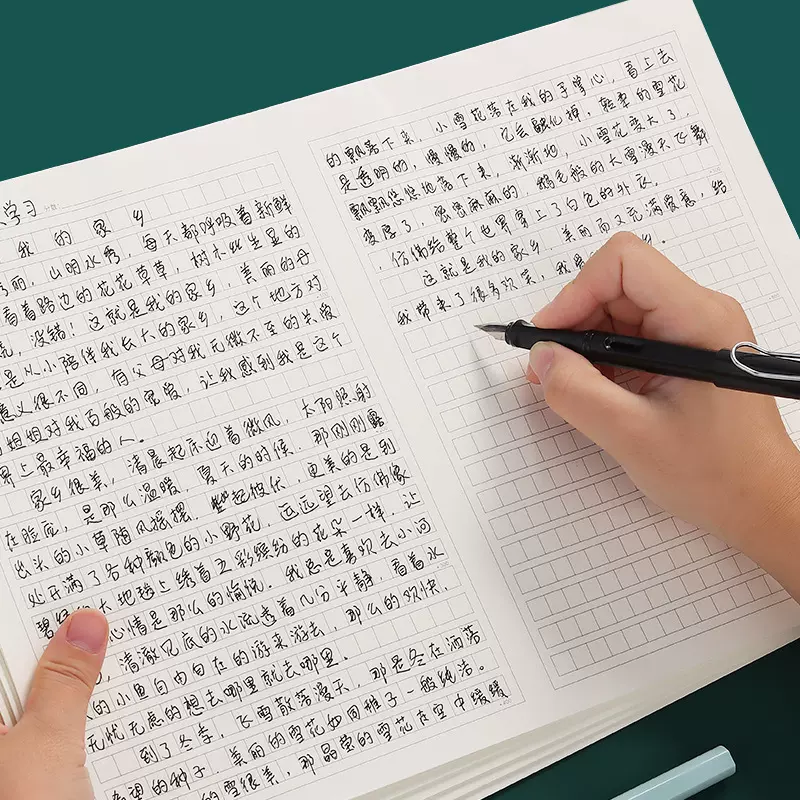 学习
我的家乡
秀丽，山明水秀，每天都呼吸着新鲜
看着路边的花花草草，树木丛生显的
，没错！这就是我的家乡，美丽的母
是从小陪伴我长大的家乡，这个地方对
意义很不同，有父母对我无微不至的关爱
姐姐对我百般的宠爱，让我感到我是这个
界上最幸福的人。
家乡很美，清晨起床迎着微风，太阳照射
在脸应，是那么温暖，夏天的时候，那刚刚露
出头的小草随风摇摆，起彼伏，更美的是到
处开满了各种颜色的小野花，远远望去仿佛像
碧绿的大地毯上绣着五彩缤纷的花朵一样，让
心情是那么的愉悦。我总是喜欢去小河
，清澈见底的水流透着几分平静，看着水
的小鱼自由自在的游来游去，那么的欢快，
无忧无虑的想去哪里就去哪里。
到了冬季，飞雪散落漫天，那是冬在洒落
希望的种子，美丽的雪花如同稚子一般纯洁。
的雪很美，那晶莹的雪花在空中缓缓
的飘落下来，小雪花落在我的手掌心，看上去
是透明的，慢慢的，它会融化掉，轻柔的雪花
飘飘悠悠地落下来，渐渐地，小雪花变大了，
变厚了，密密麻麻的，鹅毛般的大雪漫天飞舞
，仿佛给整个世界穿上了白色的外衣。
这就是我的家乡，美丽而又充满爱意，给
我带来了很多欢笑，我 乡。